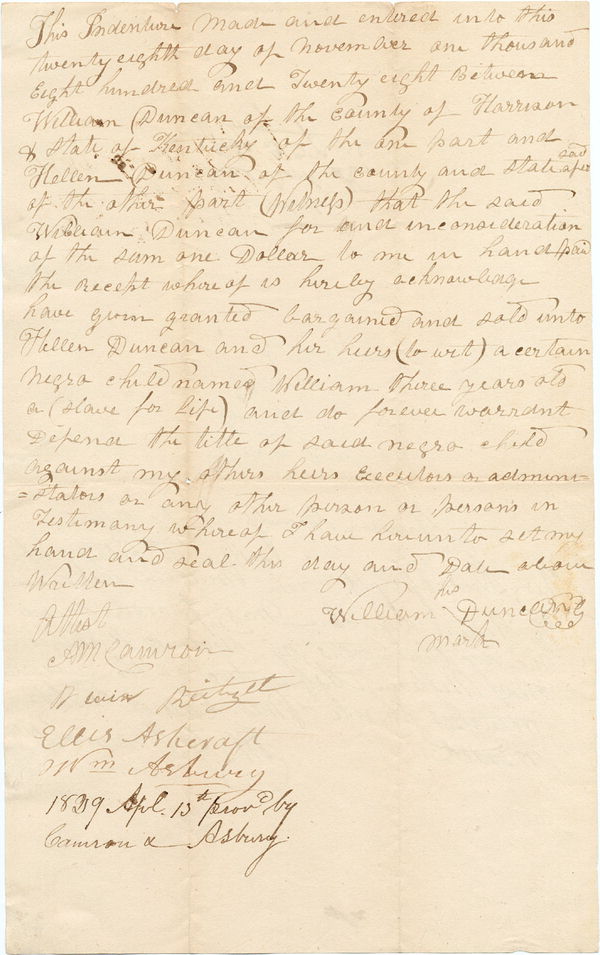 This Indenture made and entered into this
twenty eighth day of November one thousand
Eight hundred and Twenty eight Between
William Duncan of the County of Harrison
& State of Kentucky of the one part and
Hellen Duncan of the county and State afor said
of the other part (Witness) that the said
William Duncan for and inconsideration
of the sum one Dollar to me in hand paid
the recept where of is hereby acknowledge
have given granted bargained and sold unto
Hellen Duncan and hir heirs (to wit) a certain
negro child named William three years old
a (slave for life) and do forever warrant
Defend the title of said negro child
against my others heirs Executors or admini=
=strators or any other person or persons in
Testimany whereof I have hereunto set my
hand and seal this day and Date above
Written
his
William Duncan
mark
Attest
AM Camron
Ellis Ashcraft
Wm Asbury
1839 Apl. 13th prov'd by
Camron & Asbury.